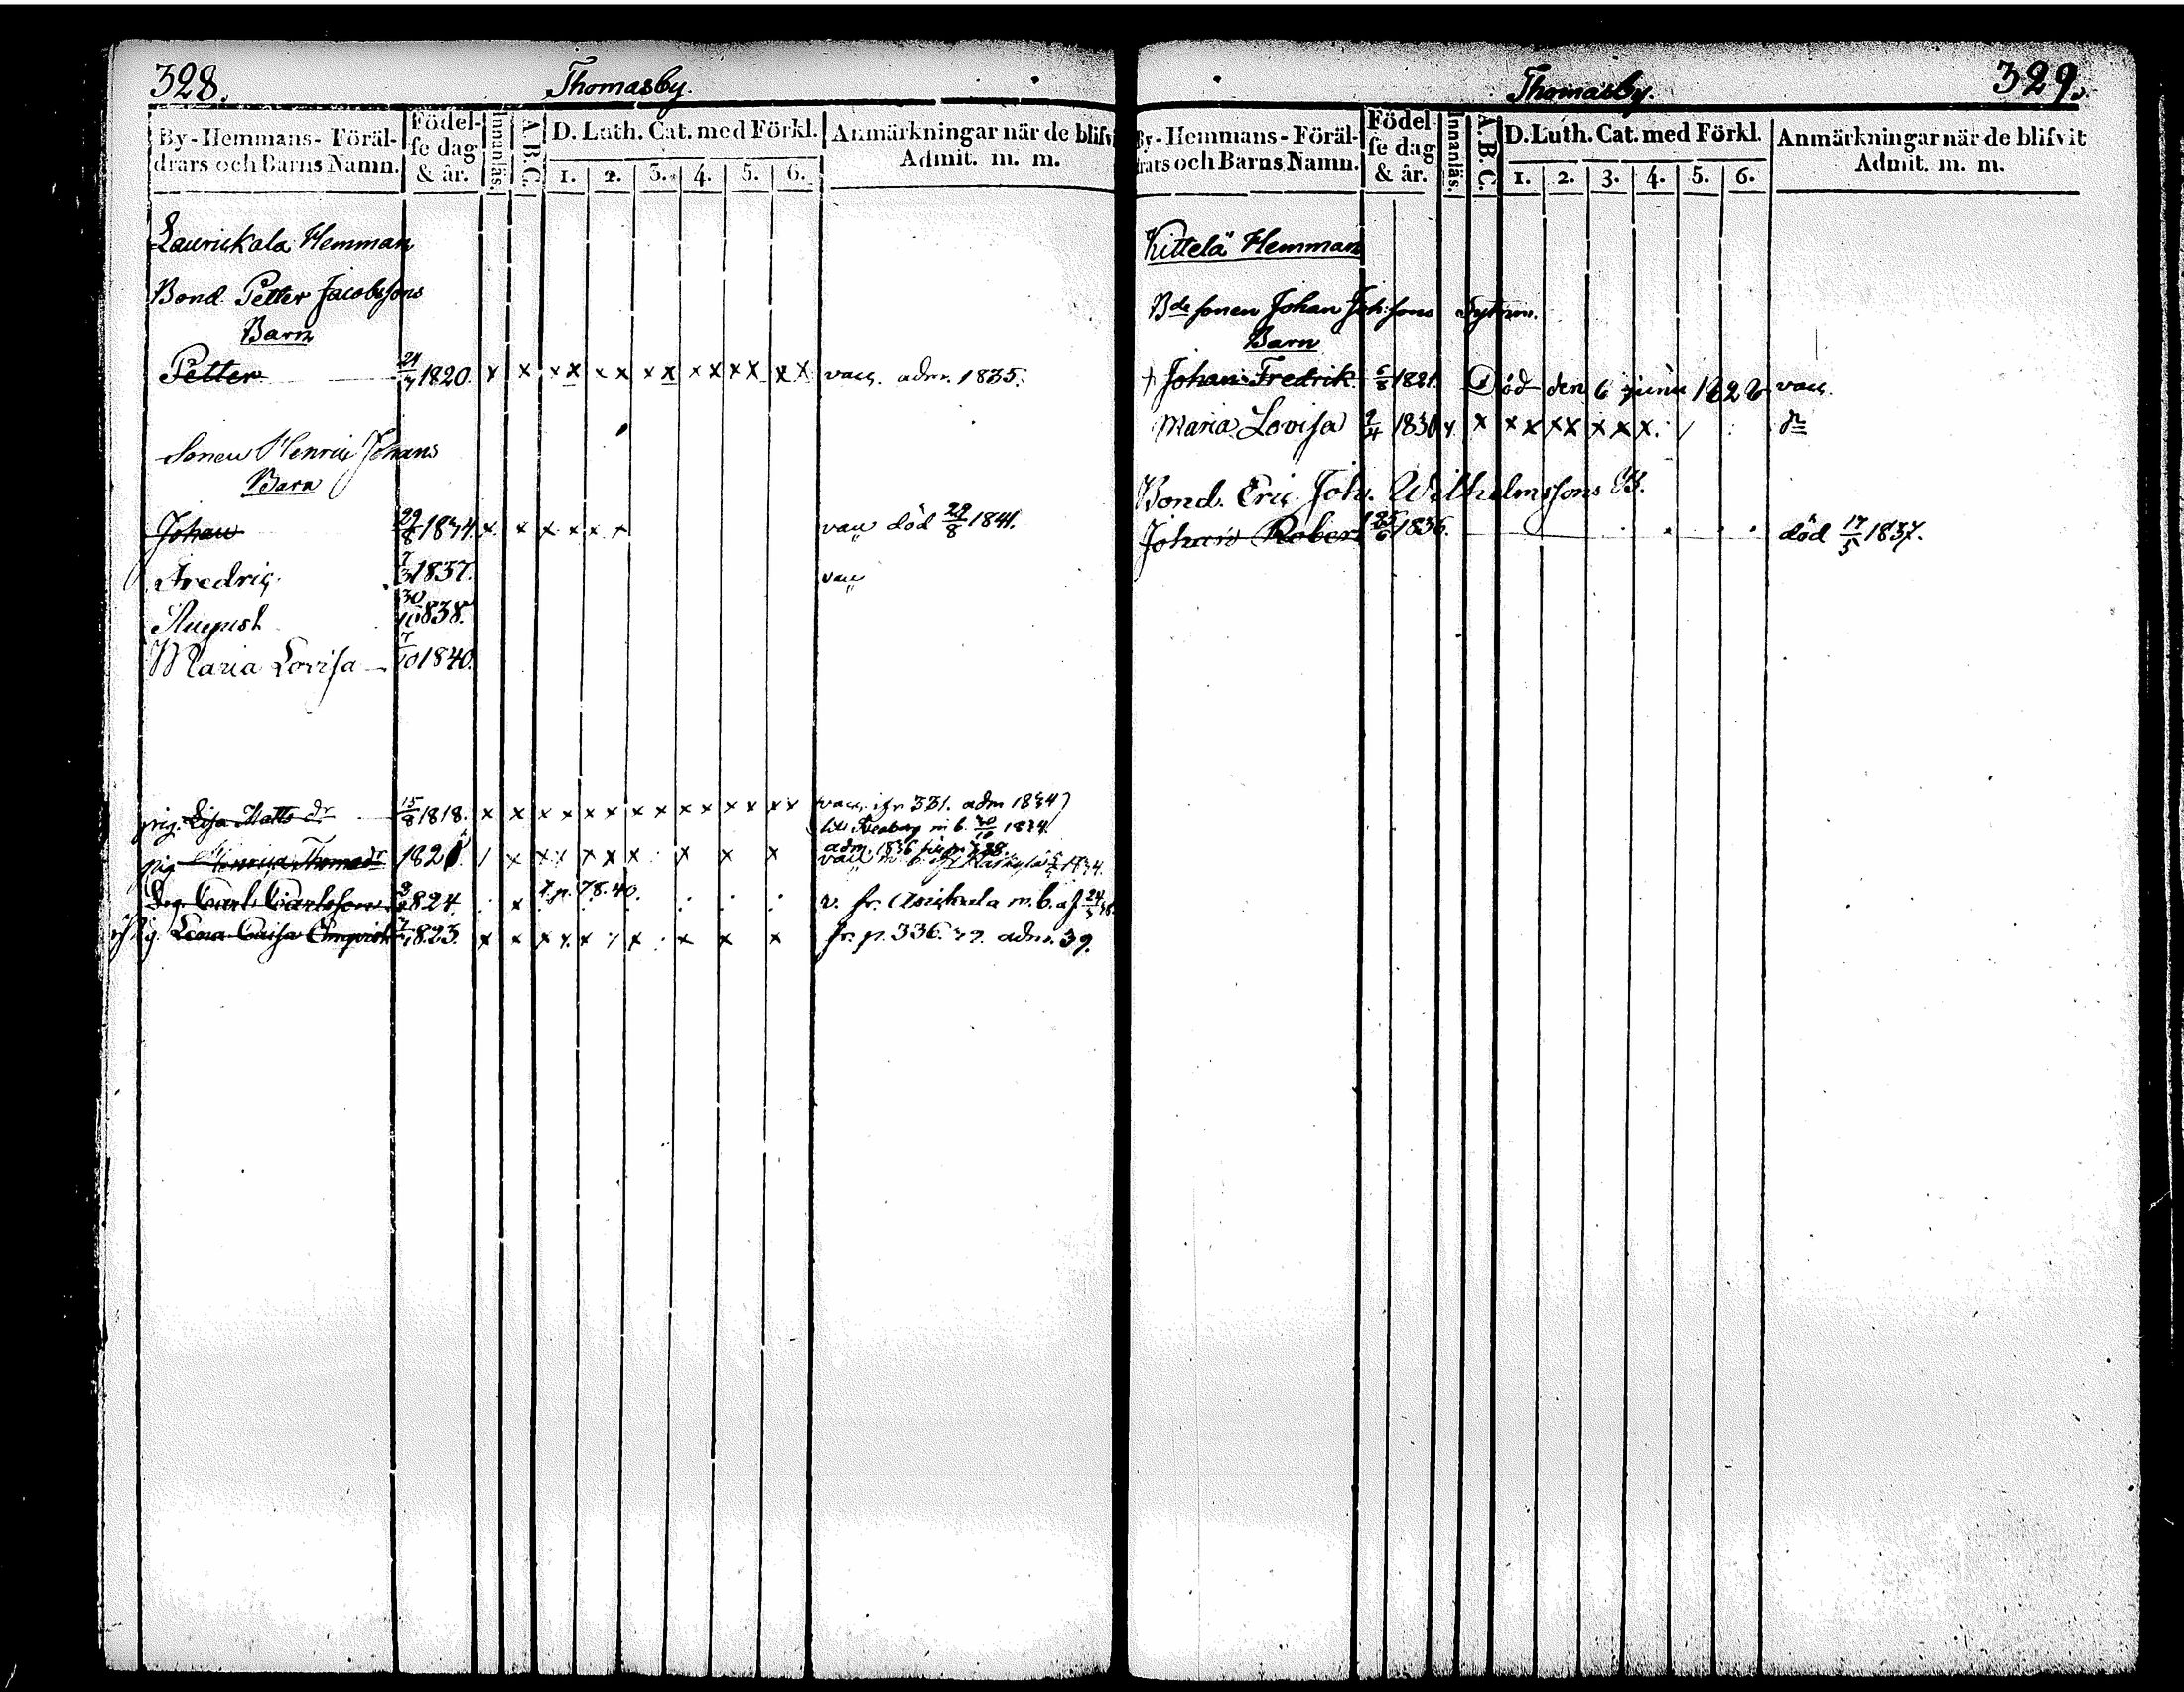 328.
Thomasby.
By-Hemmans-Föräl-
drars och Barns Namn.
Födel-
se dag
& år.
Innanläs.
A.B.C.
D. Luth. Cat. med Förkl.
1. 2. 3. 4. 5. 6.
Anmärkningar när de blifvi
Admit. m. m.
Laurickala Hemman
Bond. Petter Jacobssons
Barn
Petter 24/7 1820. x x x x x x x x x x x x x x vacc. adm. 1835.
Sonen Henric Johans
Barn
Johan 1834. x x x x x x vacc död 29/8 1841.
Fredric 7/3 1837. vacc
August 30/10 1838.
Maria Lovisa 7/10 1840.
pig. Lisa Matts dr 15/8 1818. x x x x x x x x x x x x x x vacc. ifr 331. adm 1834
m. b. 30/10 1834.
pig Thomasdr 182 / x x x x x x x x x adm. 1836
vacc m. b.
Carl Carlsson 1824. x 78. 40. v. fr. m. b. af 24/3
Lena Caisa 1823. x x x x x x x x x fr. p. 336. adm. 39.
329.
Thomasby.
By-Hemmans-Föräl-
rars och Barns Namn.
Födel
se dag
& år.
Innanläs.
A.B.C.
D. Luth. Cat. med Förkl.
1. 2. 3. 4. 5. 6.
Anmärkningar när de blifvit
Admit. m. m.
Kittelä Hemman
Bde sonen Johan Joh:sons
Barn
† Johan Fredrik 6/8 1821. Död den 6 junii vacc.
Maria Lovisa 2/4 1830 x x x x x x x x x do
Bond. Eric Joh. Wilhelmssons B.
Johan Robert 25/6 1836. död 17/5 1837.